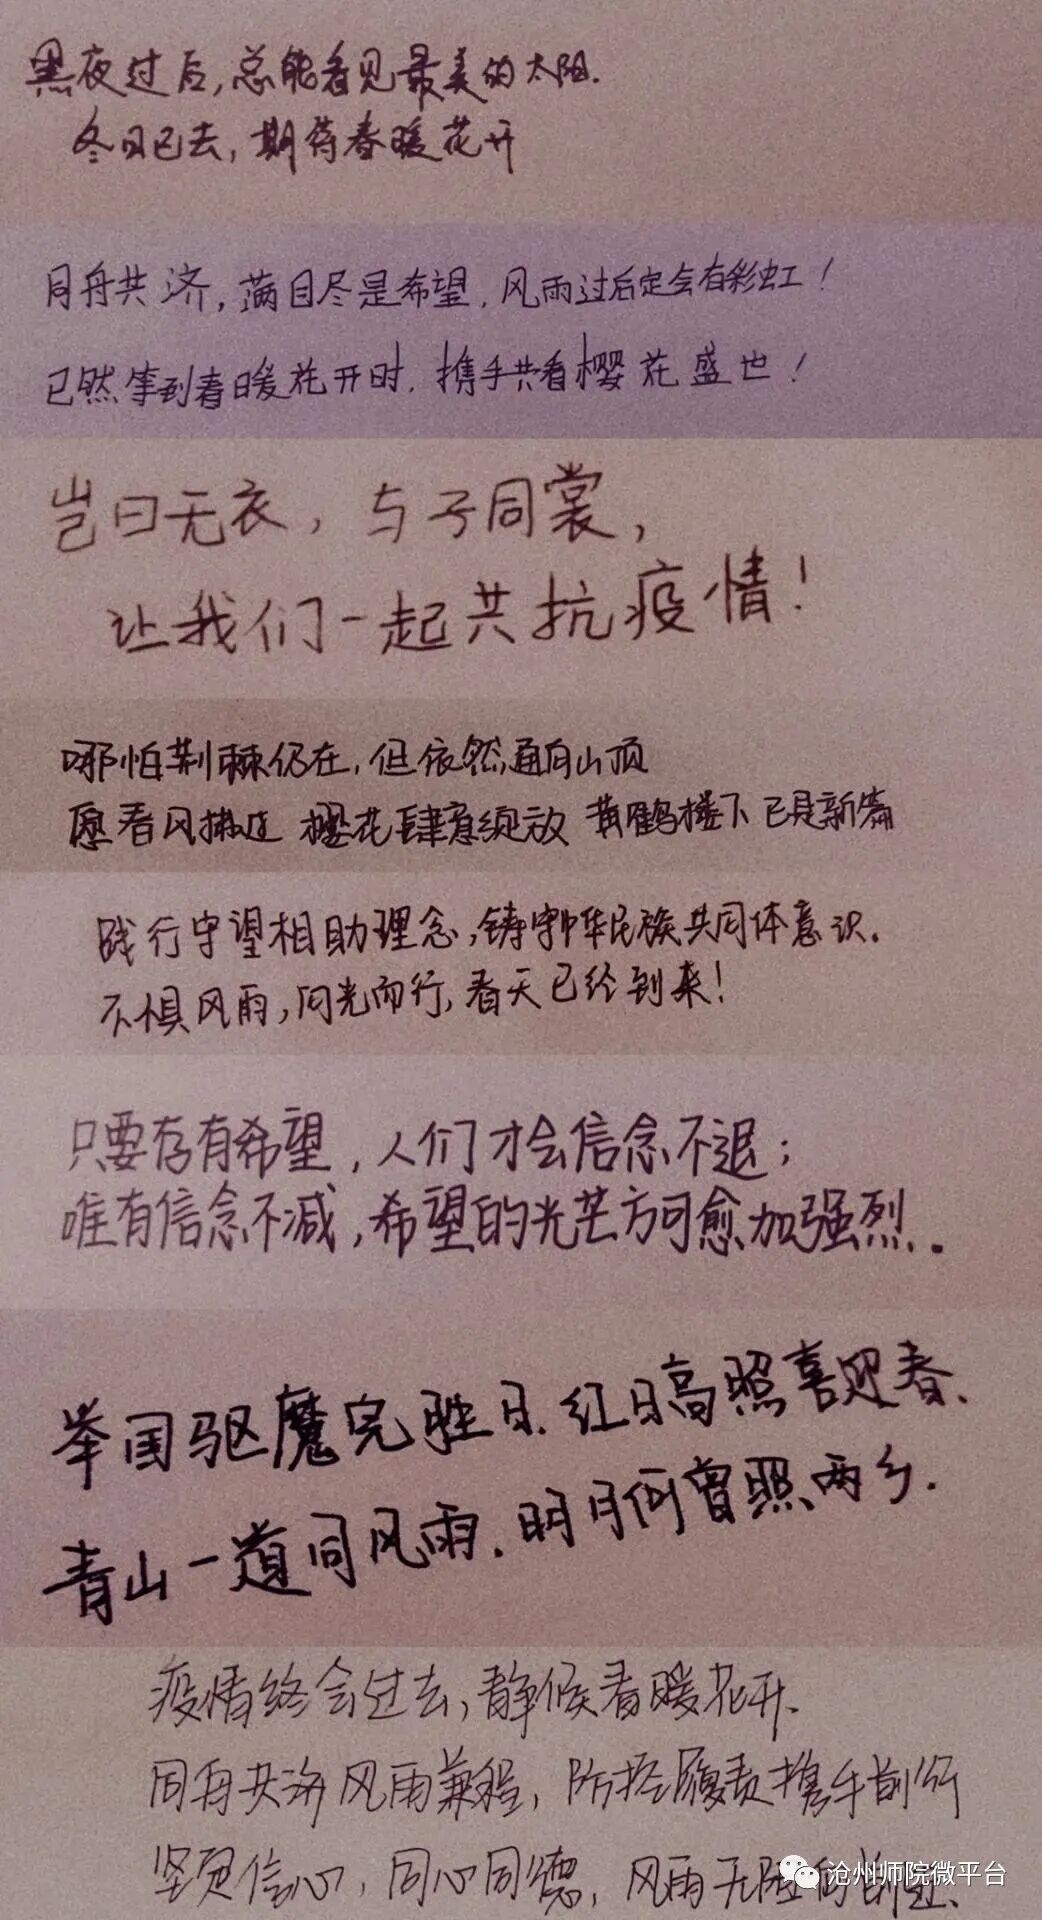 黑夜过后,总能看见最美的太阳.
冬日已去,期待春暖花开
同舟共济,满目尽是希望,风雨过后定会有彩虹!
已然等到春暖花开时.携手共看樱花盛世!
岂曰无衣,与子同裳,
让我们一起共抗疫情!
哪怕荆棘仍在,但依然通向山顶
愿春风拂过 樱花肆意绽放 黄鹤楼下已是新篇
践行守望相助理念,铸牢中华民族共同体意识.
不惧风雨,向光而行,春天已经到来!
只要存有希望,人们才会信念不退;
唯有信念不减,希望的光芒方可愈加强烈.
举国驱魔完胜日.红日高照喜迎春.
青山一道同风雨.明月何曾照两乡.
疫情终会过去,静候春暖花开.
同舟共济风雨兼程,防控履责携手前行
坚定信心,同心同德,风雨无阻向前
沧州师院微平台